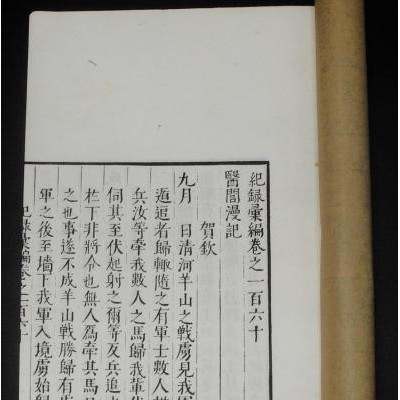 紀録彙編卷之一百六十
醫閭漫記
賀欽
九月 日清河羊山之戰虜見我軍
遁追者歸輙隨之有軍士數人
兵汝等牽我數人之馬歸我輩伏
伺其至伏起射之爾等反兵追
於下非將令也無人爲牽其馬
之也事遂不成羊山戰勝歸有
軍之後至墻下我軍入境虜始歸
紀録彙編卷之一百六十